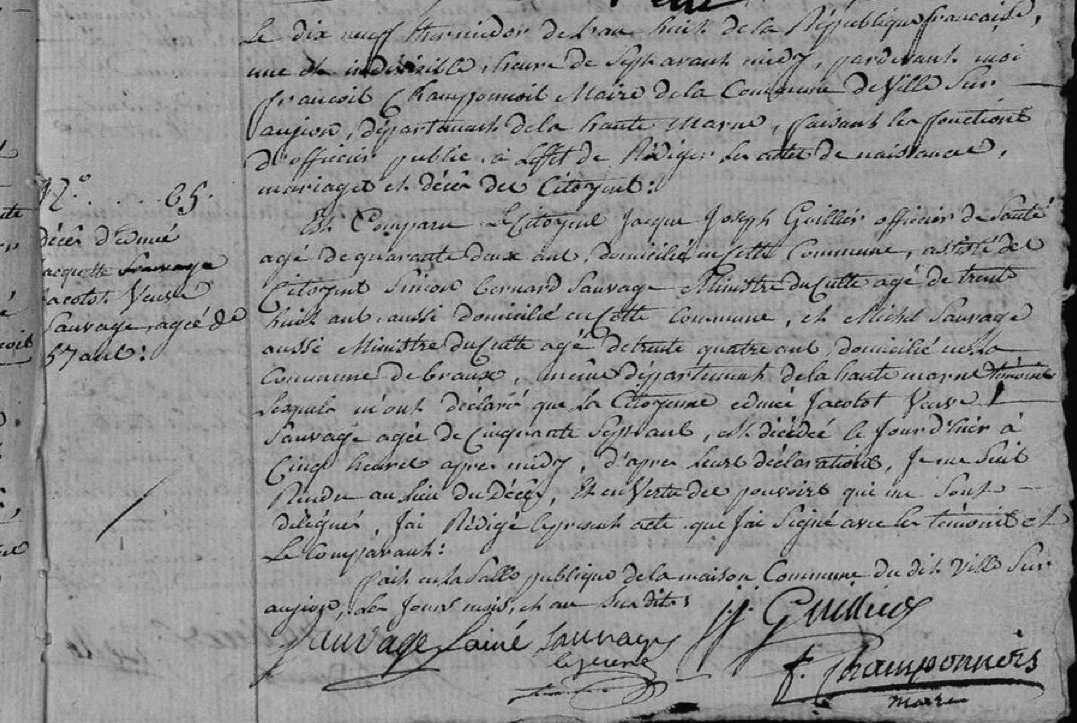 Le dix neuf thermidor de l'an huit de la République française,
une et indivisible, heure de sept avant midy, pardevant moi
françois Champonnois Maire de la Commune de Ville Sur
aujon, département de la haute Marne, faisant les fonctions
D'officier public, à L'effet de Rédiger Les actes de naissances,
mariages et décès des Citoyens:
N.° . . . . . 65.
décès d'Edmée
Jacquotte Sauvage
Jacotot Veuve
Sauvage, agée de
57 ans:
Est Comparu Le Citoyens Jacque Joseph Guillier officier de Santé
agé de quarante deux ans, domicilié en Cette Commune, assisté des
Citoyens Simon bernard Sauvage Ministre du Culte agé de trente
huit ans, aussi domicilié en Cette Commune, et Michel Sauvage
aussi Ministre du Culte agé de trente quatre ans, domicilié en la
Commune de braux, même département de la haute marne témoins
Lesquels m'ont déclaré que La Citoyenne edmée Jacotot Veuve
Sauvage agée de Cinquante Sept ans, est décédée le Jour d'hier à
Cinq heures apres midy, d'apres Leurs déclarations, Je me Suis
Rendu au Lieu du Décès, Et en Vertu des pouvoirs qui me Sont
délégués, J'ai Rédigé le present acte que J'ai Signé avec les témoins et
Le Comparant:
fait en la Salle publique de la maison Commune du dit Ville Sur
aujon, Les Jours mois, et an Susdits
Sauvage Lainé Sauvage J. J. Guillier
le jeune
f. Champonnois
maire